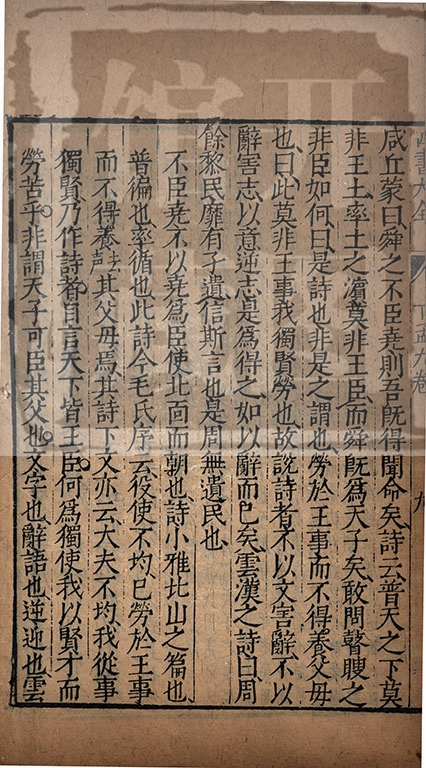 咸丘蒙曰舜之不臣堯則吾旣得聞命矣詩云普天之下莫
非王土率土之濵莫非王臣而舜旣爲天子矣敢問瞽瞍之
非臣如何曰是詩也非是之謂也勞於王事而不得養父母
也曰此莫非王事我獨賢勞也故說詩者不以文害辭不以
辭害志以意逆志是爲得之如以辭而已矣雲漢之詩曰周
餘黎民靡有孑遺信斯言也是周無遺民也
不臣堯不以堯爲臣使北面而朝也詩小雅北山之篇也
普徧也率循也此詩今毛氏序云役使不均已勞於王事
而不得養去聲其父母焉其詩下文亦云大夫不均我從事
獨賢乃作詩者自言天下皆王臣何爲獨使我以賢才而
勞苦乎非謂天子可臣其父也文字也辭語也逆迎也雲